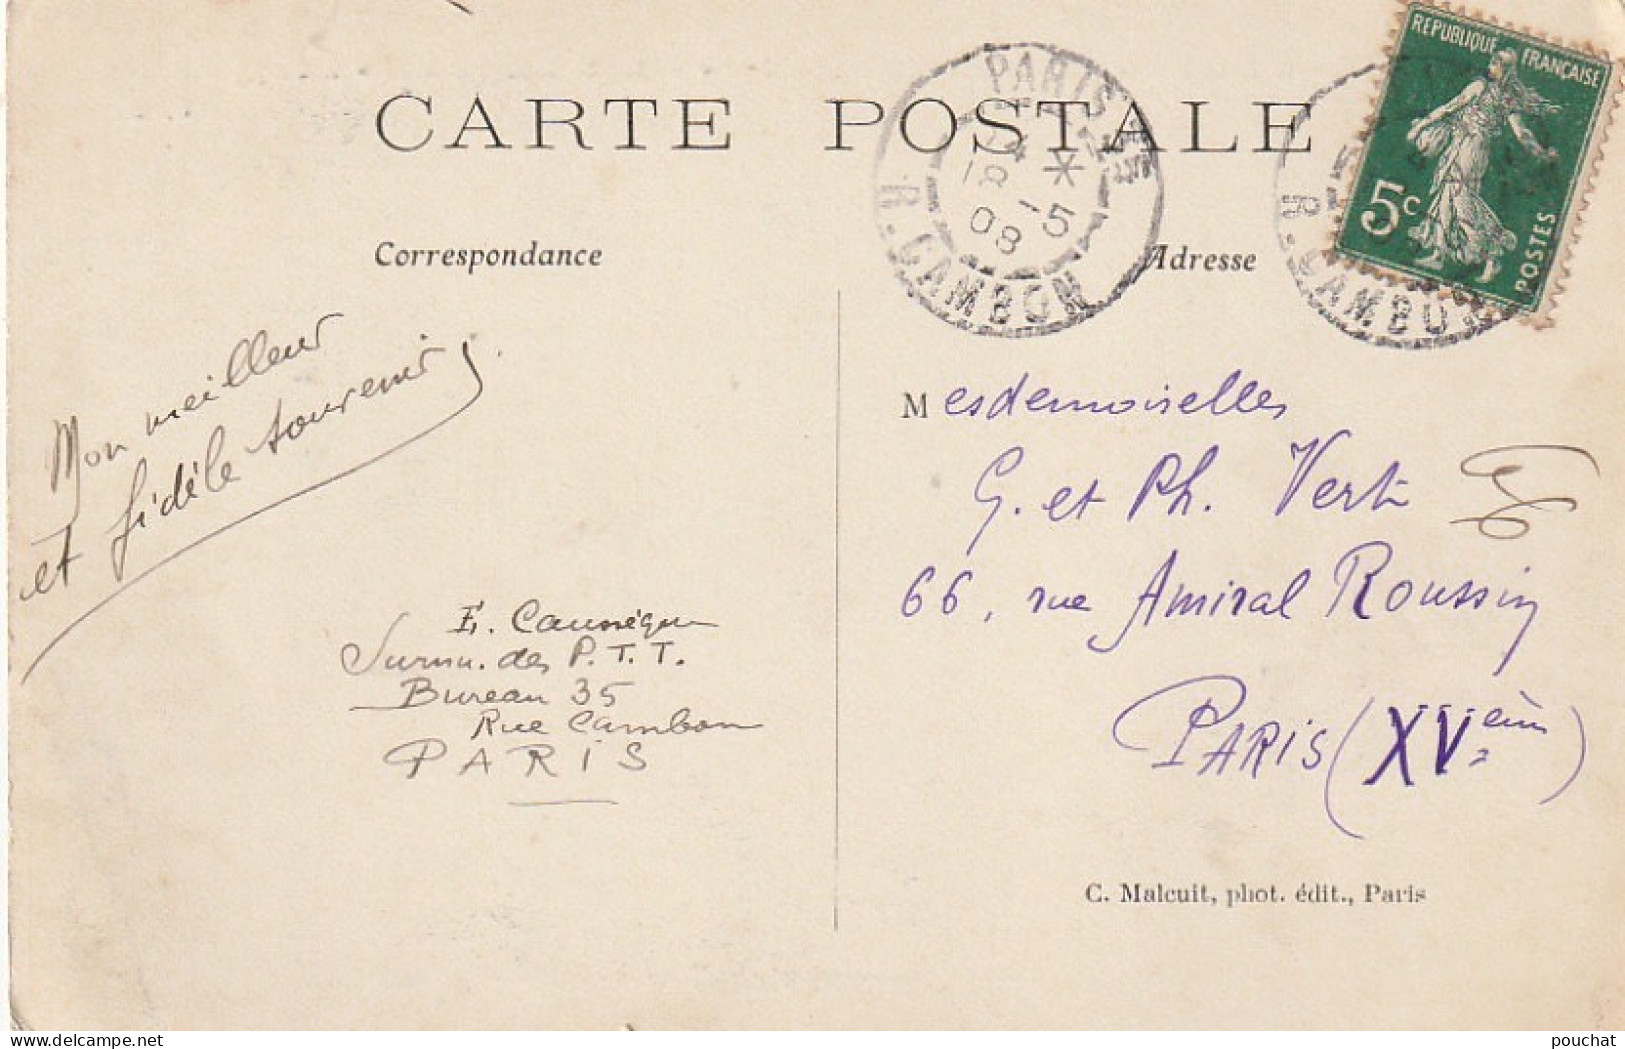 CARTE POSTALE
Correspondance
Adresse
REPUBLIQUE FRANÇAISE
5c
POSTES
PARIS
4 *
18 -5
08
R. CAMBON
R. CAMBON
Mon meilleur
et fidèle souvenir
E. Caussègue
Surnu. des P.T.T.
Bureau 35
Rue Cambon
PARIS
Mesdemoiselles
G. et Ph. Vert
66, rue Amiral Roussin
PARIS (XVème)
C. Malcuit, phot. édit., Paris
delcampe.net
pouchat